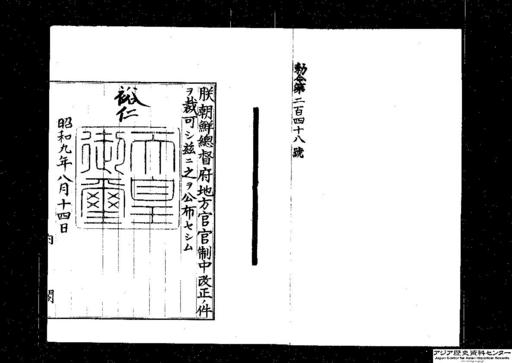 勅令第二百四十八號
朕朝鮮總督府地方官官制中改正ノ件
ヲ裁可シ茲ニ之ヲ公布セシム
裕仁
天皇
御璽
昭和九年八月十四日
内閣
アジア歴史資料センター
Japan Center for Asian Historical Records